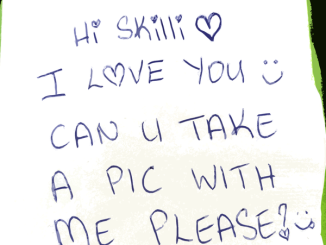 Hi SKilli ♡
I L♡VE YOU :)
CAN U TAKE
A PIC WITH
ME PLEASE? :)